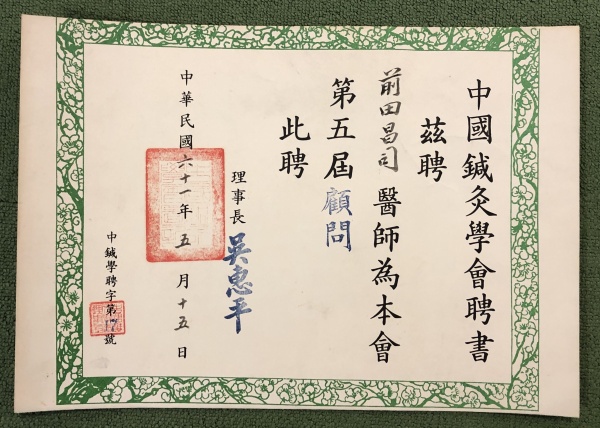 中國鍼灸學會聘書
茲聘
前田昌司醫師為本會
第五屆顧問
此聘
理事長 吳惠平
中華民國六十一年五月十五日
中鍼學聘字第17號